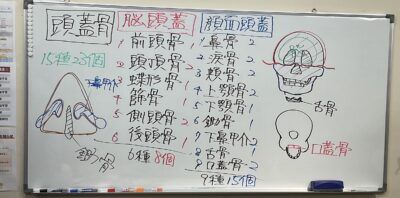 頭蓋骨
15種23個
下鼻甲介
鋤骨
脳頭蓋
1 前頭骨 1
2 頭頂骨 2
3 蝶形骨 1
4 篩骨 1
5 側頭骨 2
6 後頭骨 1
6種8個
顔面頭蓋
1 鼻骨 2
2 涙骨 2
3 頬骨 2
4 上顎骨 2
5 下顎骨 1
6 鋤骨 1
7 下鼻甲介 2
8 舌骨 1
9 口蓋骨 2
9種15個
舌骨
口蓋骨